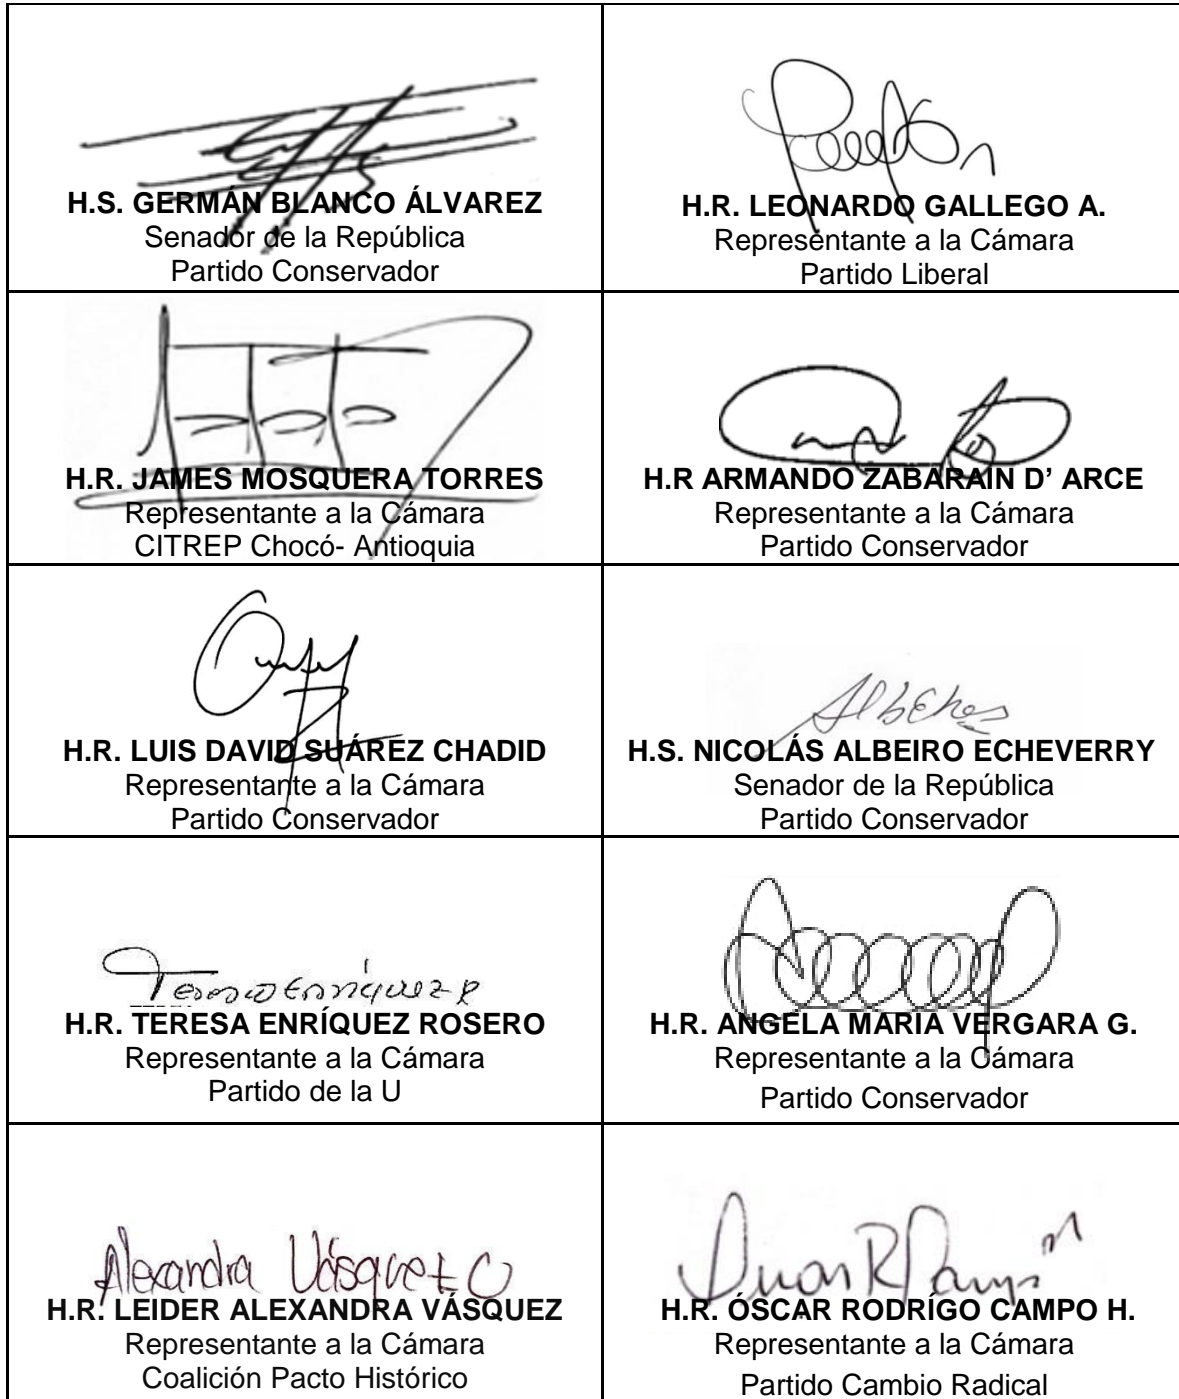 H.S. GERMÁN BLANCO ÁLVAREZ
Senador de la República
Partido Conservador
H.R. LEONARDO GALLEGO A.
Representante a la Cámara
Partido Liberal
H.R. JAMES MOSQUERA TORRES
Representante a la Cámara
CITREP Chocó- Antioquia
H.R ARMANDO ZABARAIN D’ ARCE
Representante a la Cámara
Partido Conservador
H.R. LUIS DAVID SUÁREZ CHADID
Representante a la Cámara
Partido Conservador
H.S. NICOLÁS ALBEIRO ECHEVERRY
Senador de la República
Partido Conservador
Teresa Enríquez R
H.R. TERESA ENRÍQUEZ ROSERO
Representante a la Cámara
Partido de la U
H.R. ANGELA MARIA VERGARA G.
Representante a la Cámara
Partido Conservador
Alexandra Vásquez C
H.R. LEIDER ALEXANDRA VÁSQUEZ
Representante a la Cámara
Coalición Pacto Histórico
H.R. ÓSCAR RODRÍGO CAMPO H.
Representante a la Cámara
Partido Cambio Radical